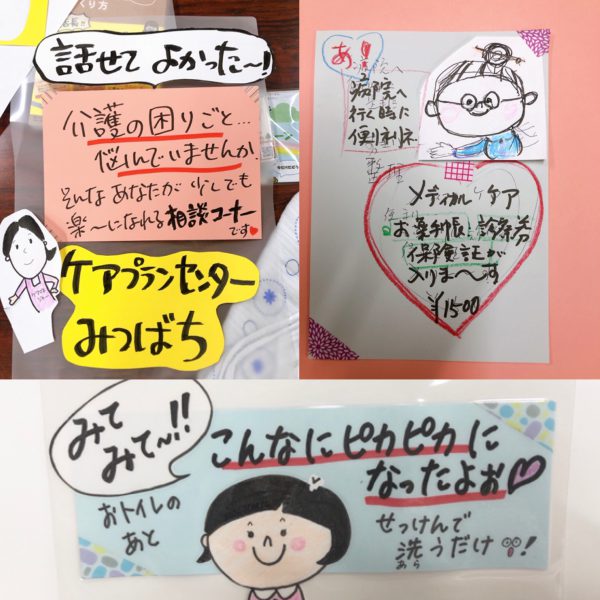 くり方
話せて よかった〜!
介護の困りごと…
悩んでいませんか
そんな あなたが 少しでも
楽〜になれる 相談コーナー
です♥
ケアプランセンター
みつばち
あ!
病院へ
行く時に
便利ネ
メディカルケア
お薬手帳 診察券
保険証が
入りま〜す
¥1500
みて
みて〜!!
こんなにピカピカに
なったよぉ♡
おトイレの
あと
せっけんで
洗うだけ!
あら